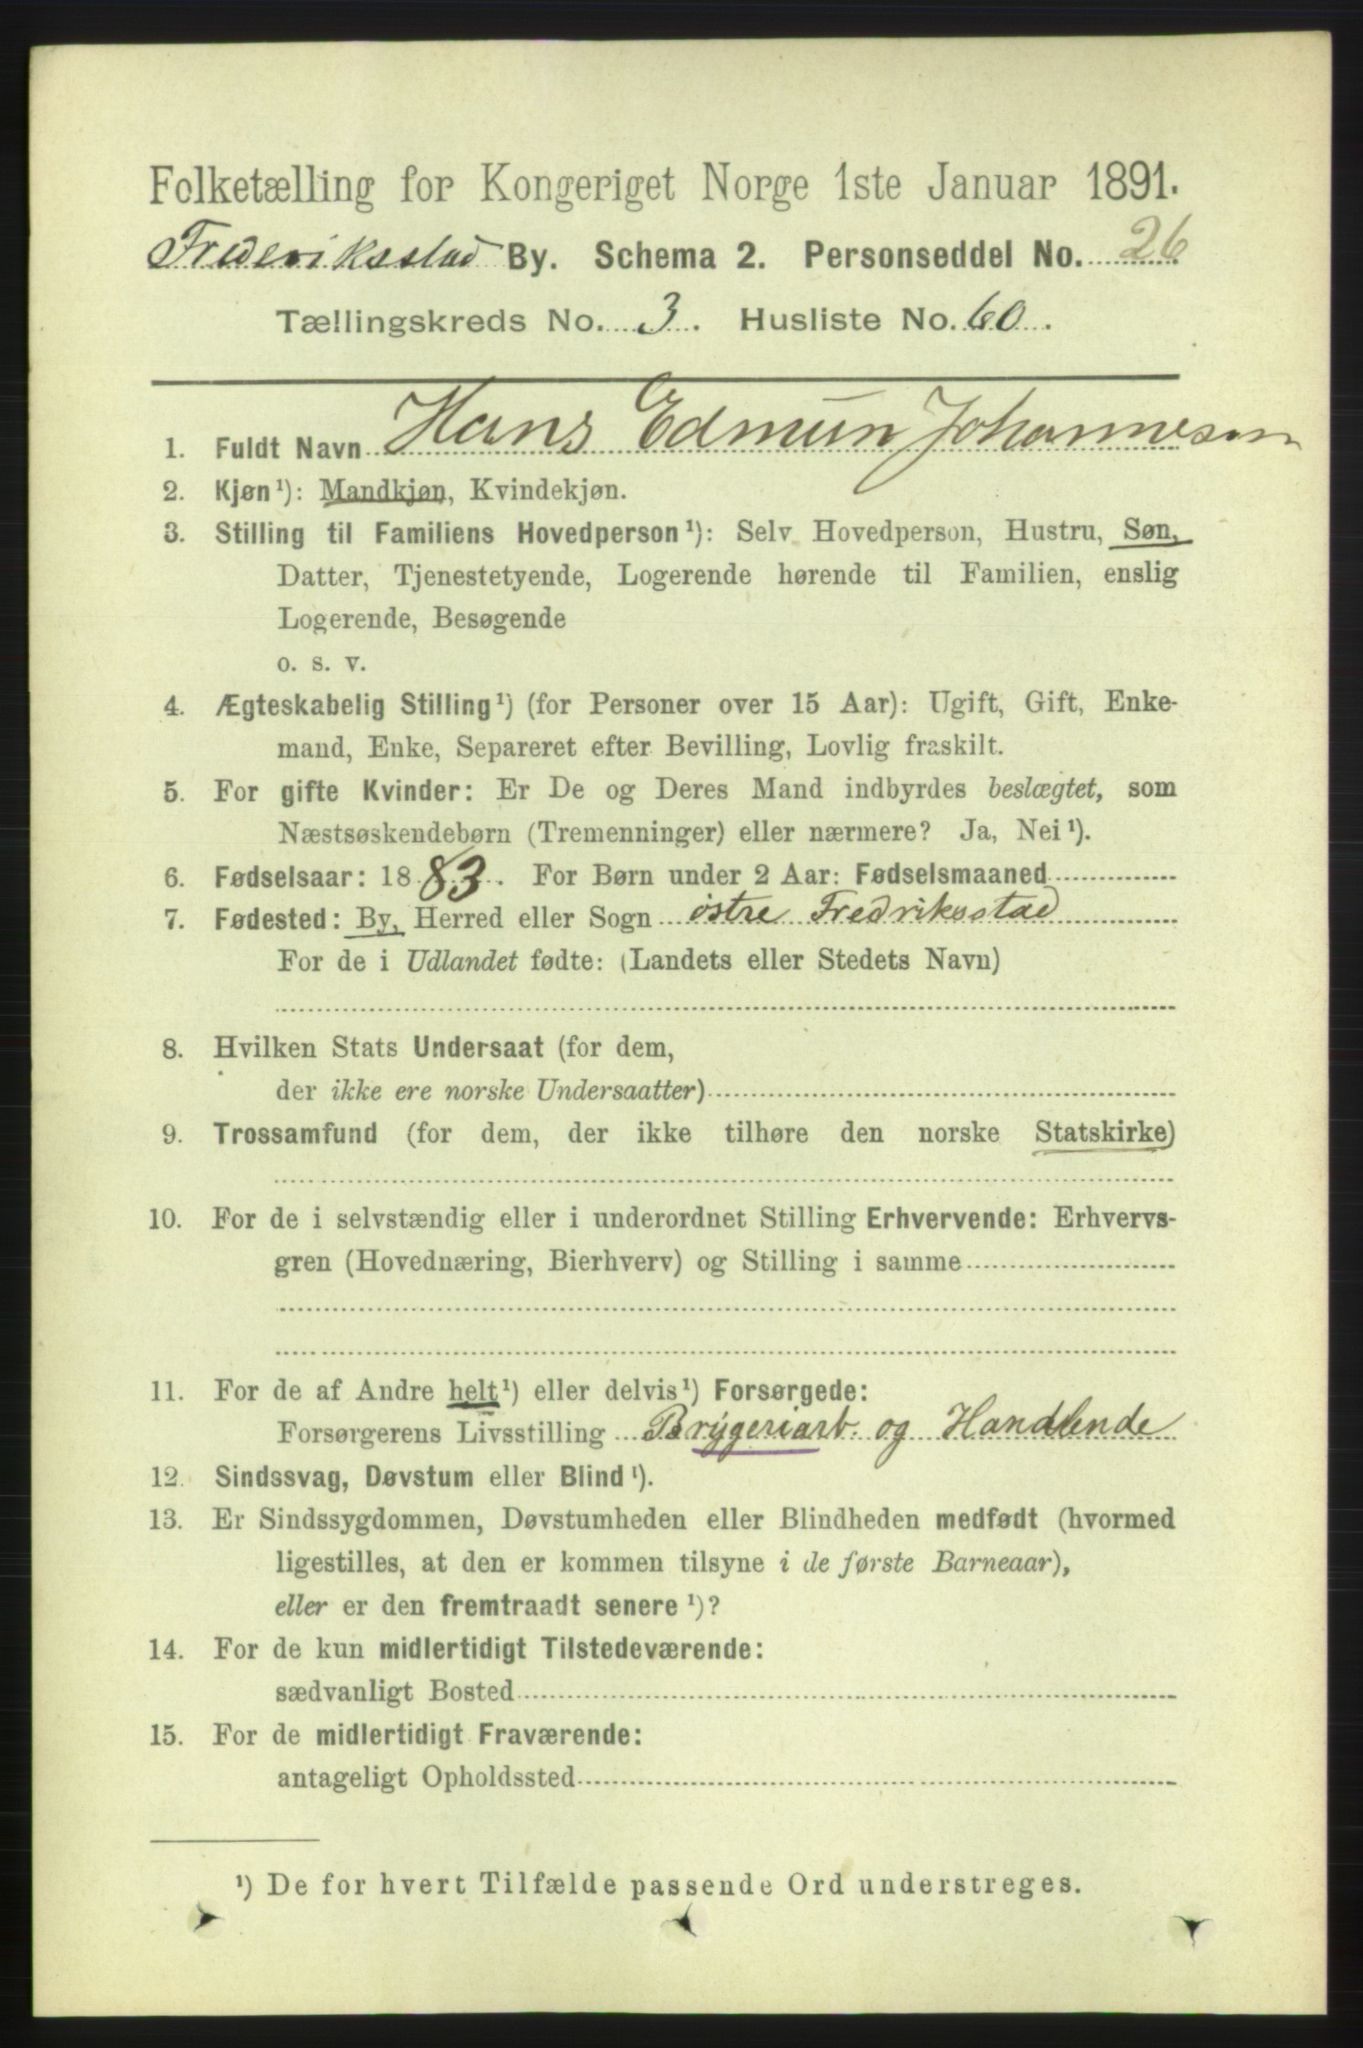 Folketælling for Kongeriget Norge 1ste Januar 1891.
Frederiksstad By. Schema 2. Personseddel No. 26
Tællingskreds No. 3. Husliste No. 60.
1. Fuldt Navn Hans Edmun Johannesen
2. Kjøn¹): Mandkjøn, Kvindekjøn.
3. Stilling til Familiens Hovedperson¹): Selv Hovedperson, Hustru, Søn,
Datter, Tjenestetyende, Logerende hørende til Familien, enslig
Logerende, Besøgende
o. s. v.
4. Ægteskabelig Stilling¹) (for Personer over 15 Aar): Ugift, Gift, Enke-
mand, Enke, Separeret efter Bevilling, Lovlig fraskilt.
5. For gifte Kvinder: Er De og Deres Mand indbyrdes beslægtet, som
Næstsøskendebørn (Tremenninger) eller nærmere? Ja, Nei¹).
6. Fødselsaar: 1883. For Børn under 2 Aar: Fødselsmaaned
7. Fødested: By, Herred eller Sogn østre Fredriksstad
For de i Udlandet fødte: (Landets eller Stedets Navn)
8. Hvilken Stats Undersaat (for dem,
der ikke ere norske Undersaatter)
9. Trossamfund (for dem, der ikke tilhøre den norske Statskirke)
10. For de i selvstændig eller i underordnet Stilling Erhvervende: Erhvervs-
gren (Hovednæring, Bierhverv) og Stilling i samme
11. For de af Andre helt¹) eller delvis¹) Forsørgede:
Forsørgerens Livsstilling Brygeriarb. og Handlende
12. Sindssvag, Døvstum eller Blind¹).
13. Er Sindssygdommen, Døvstumheden eller Blindheden medfødt (hvormed
ligestilles, at den er kommen tilsyne i de første Barneaar),
eller er den fremtraadt senere¹)?
14. For de kun midlertidigt Tilstedeværende:
sædvanligt Bosted
15. For de midlertidigt Fraværende:
antageligt Opholdssted
¹) De for hvert Tilfælde passende Ord understreges.